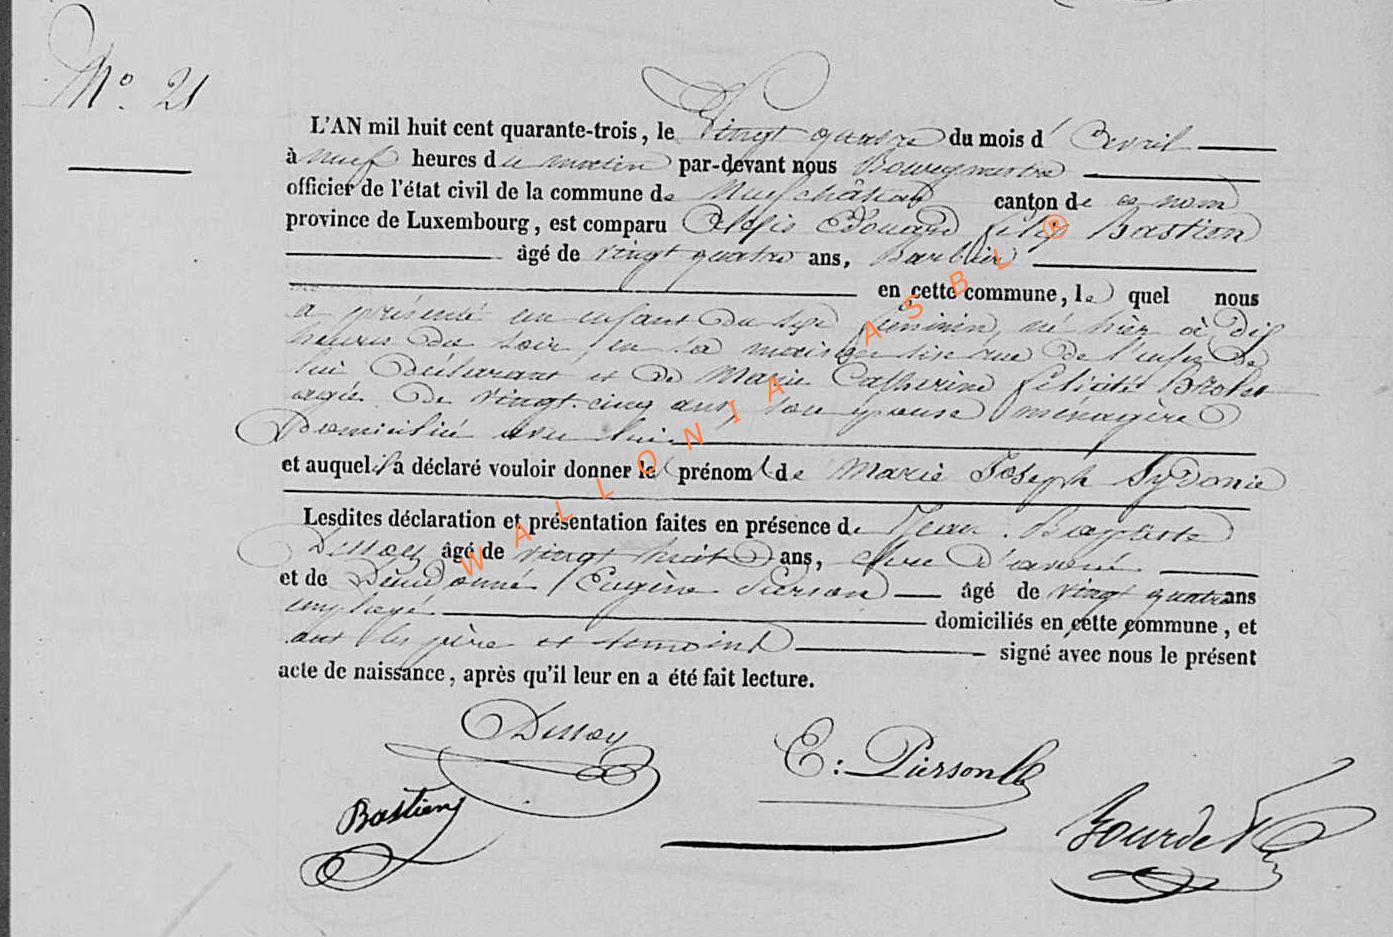 N° 21
L'AN mil huit cent quarante-trois, le Vingt quatre du mois d' Avril
à neuf heures du matin par-devant nous Bourgmestre
officier de l'état civil de la commune de Neufchâteau canton de ce nom
province de Luxembourg, est comparu Alexis Edouard félix Bastien
âgé de vingt quatre ans, Barbier
en cette commune, le quel nous
a présenté un enfant du sexe féminin, né hier à dix
heures du soir, en sa maison sise rue de l'enfer de
lui déclarant et de Marie Catherine félicité
agée de vingt-cinq ans, son épouse ménagère
domicilié avec lui.
et auquel il a déclaré vouloir donner le prénom de Marie Joseph Sydonie
Lesdites déclaration et présentation faites en présence de Jean Baptiste
Dessoy âgé de vingt huit ans, clerc d'avoué
et de Dieudonné Eugène Pierson âgé de vingt quatre ans
employé domiciliés en cette commune, et
ont les père et témoins signé avec nous le présent
acte de naissance, après qu'il leur en a été fait lecture.
Dessoy
E: Pierson
Bastien
WALLONIA ASBL ®